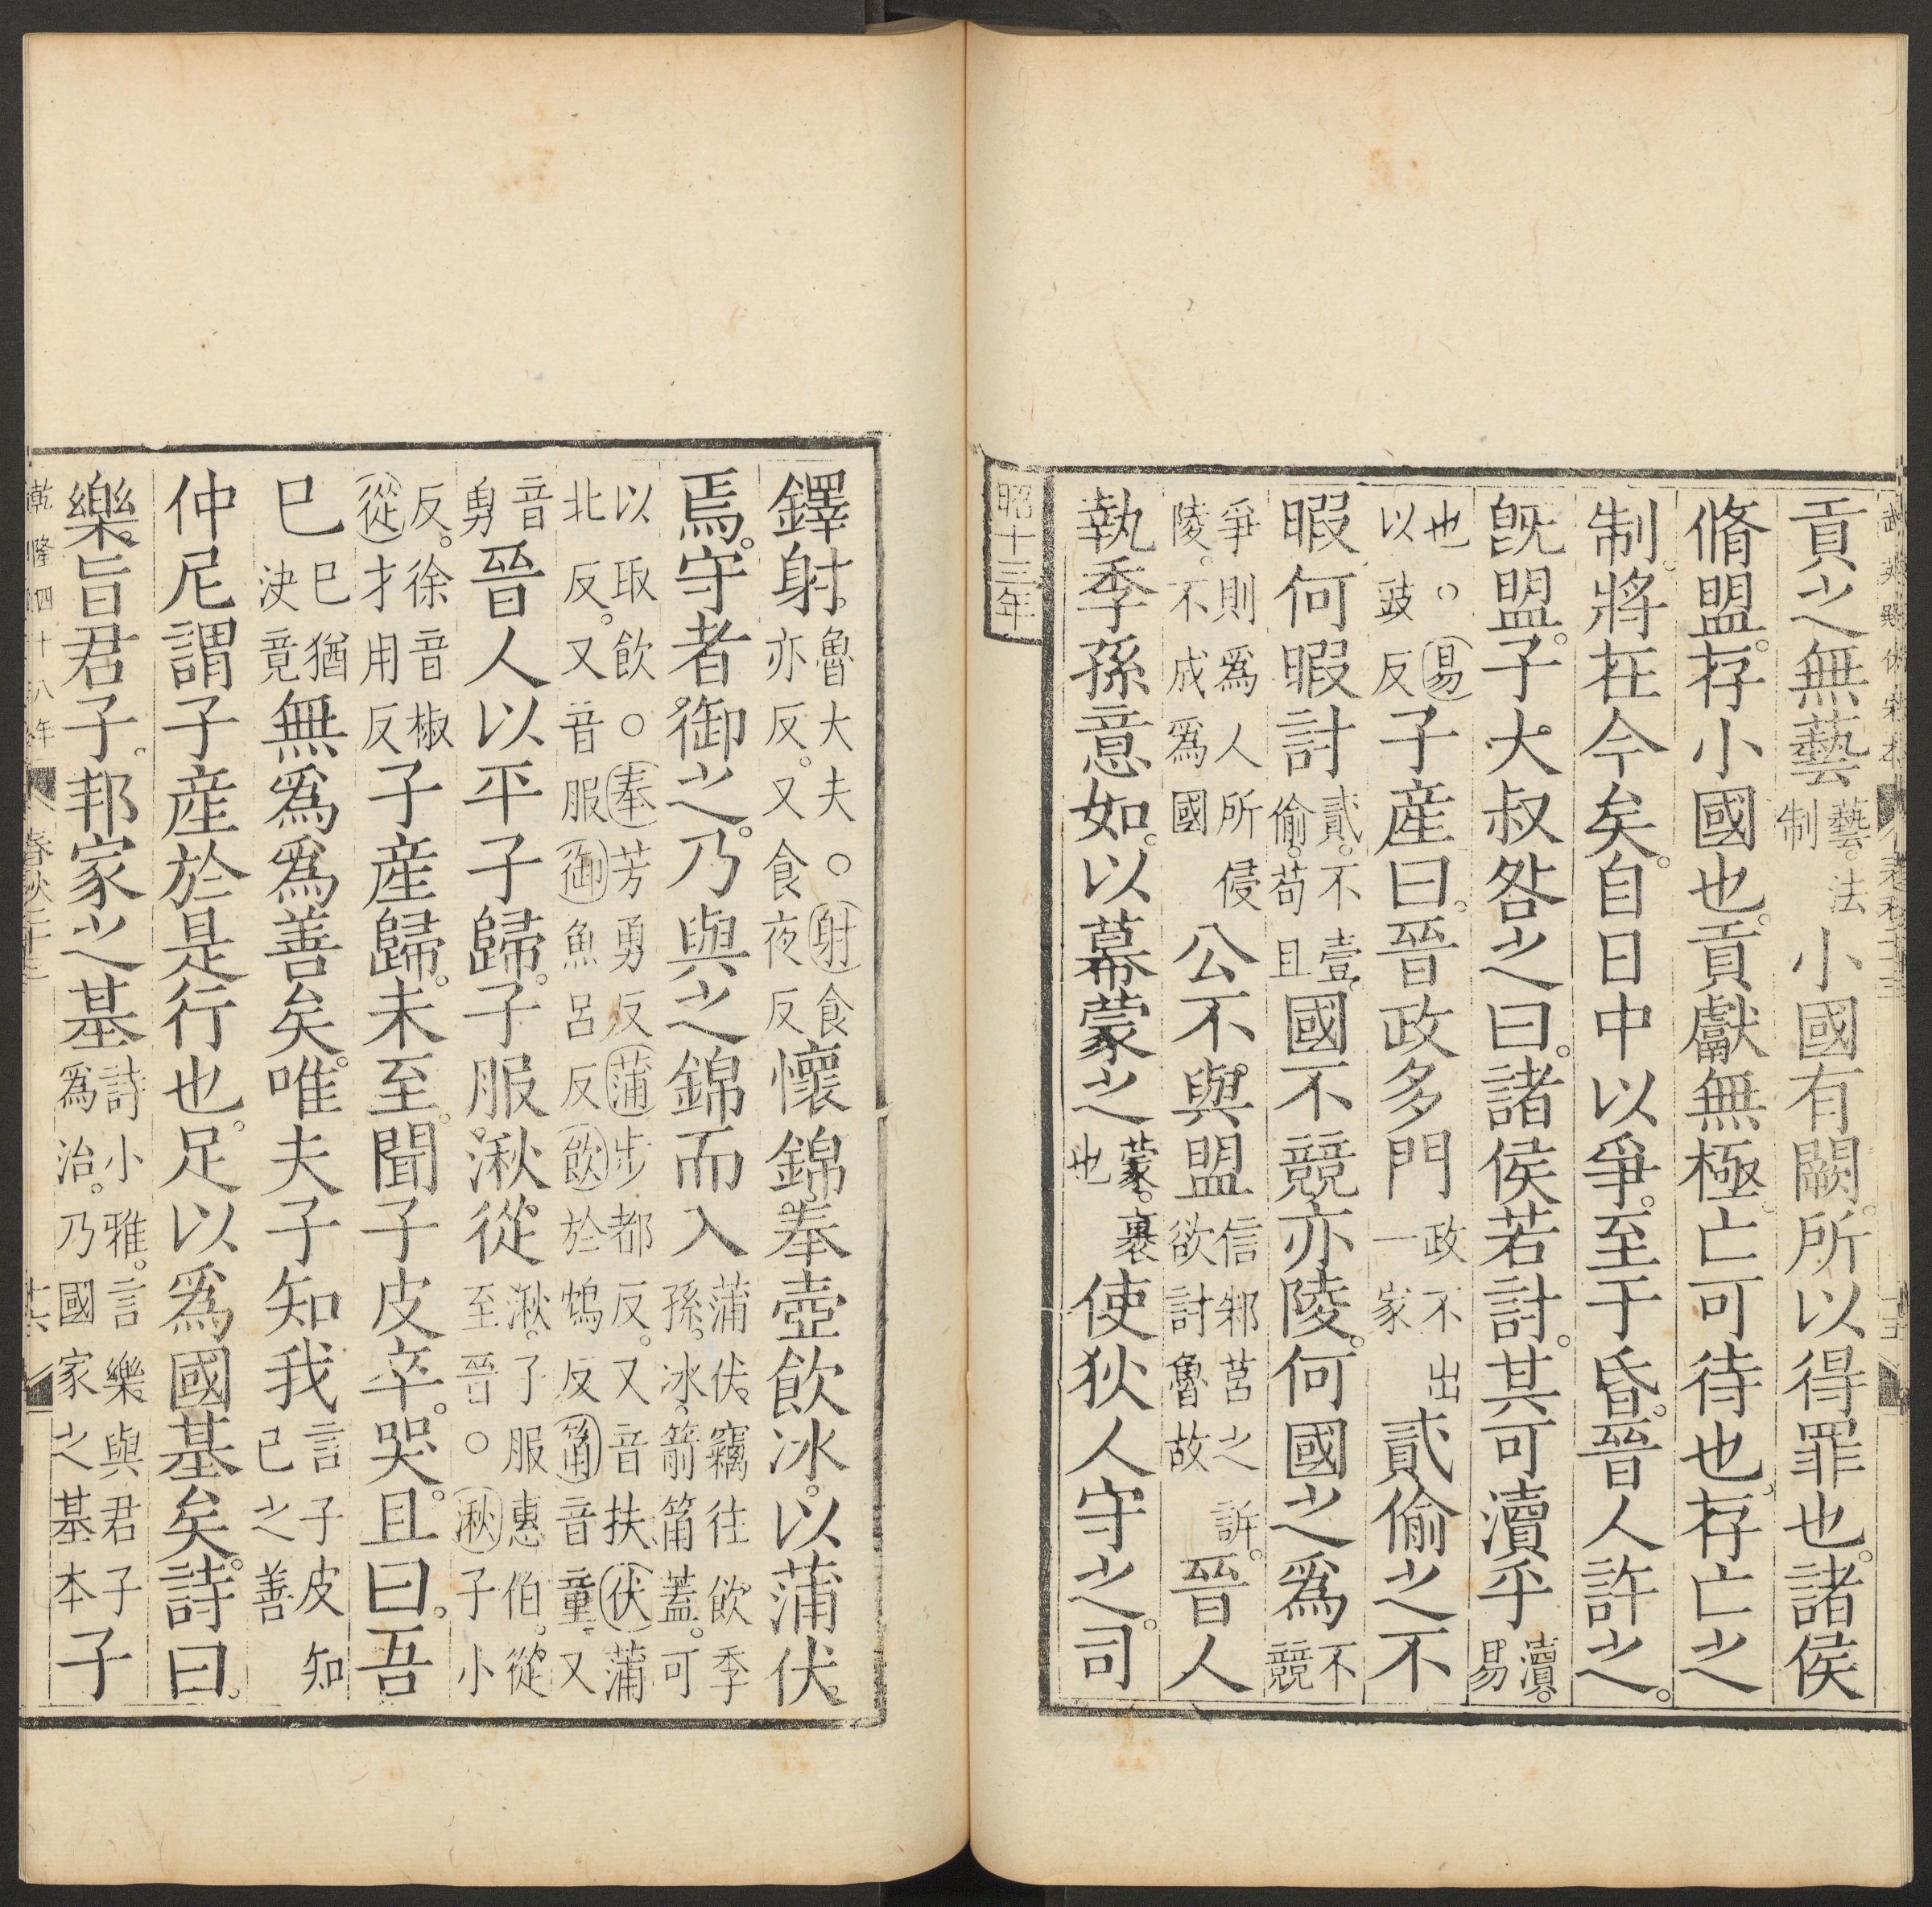 貢之無藝藝。法制小國有闕。所以得罪也。諸侯
脩盟。存小國也。貢獻無極。亡可待也。存亡之
制。將在今矣。自日中以爭。至于昏。晉人許之。
旣盟。子大叔咎之曰。諸侯若討。其可瀆乎瀆。易
也。○易以豉反子產曰。晉政多門政不出一家貳偷之不
暇。何暇討貳。不壹。偷。苟且國不競亦陵。何國之爲不競
爭則爲人所侵陵。不成爲國公不與盟信邾莒之訴。欲討魯故晉人
執季孫意如。以幕蒙之蒙。裹也使狄人守之。司
昭十三年
鐸射。魯大夫○射食亦反。又食夜反懷錦。奉壺飲冰。以蒲伏
焉。守者御之。乃與之錦而入蒲伏。竊往飲季孫。冰。箭筩蓋。可
以取飲○奉芳勇反蒲步都反。又音扶伏蒲北反。又音服御魚呂反飲於鴆反筩音童。又
音勇晉人以平子歸。子服湫從湫。子服惠伯。從至晉○湫子小
反。徐音椒從才用反子產歸。未至。聞子皮卒。哭。且曰。吾
已已猶決竟無爲爲善矣。唯夫子知我言子皮知己之善
仲尼謂子產於是行也。足以爲國基矣。詩曰。
樂旨君子。邦家之基詩小雅。言樂與君子爲治。乃國家之基本子
乾隆四十八年 春秋二十三 十六